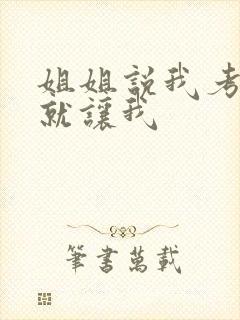 姐姐説我考
就讓我
筆書萬載